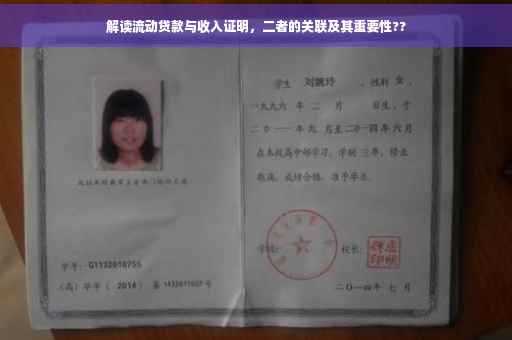 解读流动贷款与收入证明，二者的关联及其重要性??
学生 刘婉玲 ，性别 女 ，
一九九六 年 二 月 日生，于
二〇一一年九 月至二〇一四年六月
在本校高中部学习，学制 三年，修业
期满，成绩合格，准予毕业。
学校： 校长：
学号：G1132010755
（高）毕字（ 2014 ）第 1432011027 号
二〇一四年 七 月